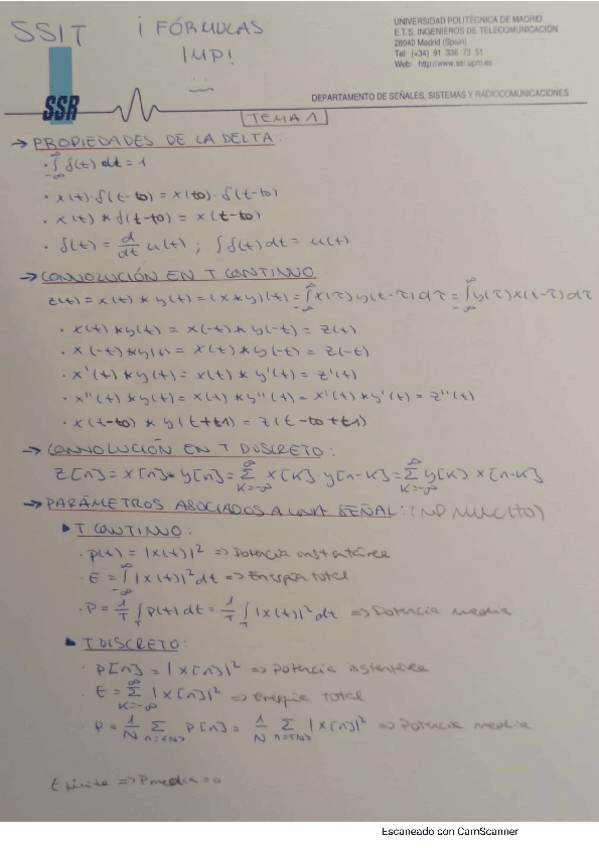 SSIT ¡ FÓRMULAS
IMP!
UNIVERSIDAD POLITÉCNICA DE MADRID
E.T.S. INGENIEROS DE TELECOMUNICACIÓN
28040 Madrid (Spain)
Tel: (+34) 91 336 73 51
Web: http://www.ssr.upm.es
SSR
DEPARTAMENTO DE SEÑALES, SISTEMAS Y RADIOCOMUNICACIONES
TEMA 1
→ PROPIEDADES DE LA DELTA:
· ∫_{-∞}^{∞} δ(t) dt = 1
· x(t)·δ(t-to) = x(to)·δ(t-to)
· x(t) * δ(t-to) = x(t-to)
· δ(t) = d/dt u(t) ; ∫δ(t)dt = u(t)
→ CONVOLUCIÓN EN T CONTINUO
z(t) = x(t) * y(t) = (x*y)(t) = ∫_{-∞}^{∞} x(τ)y(t-τ)dτ = ∫_{-∞}^{∞} y(τ)x(t-τ)dτ
· x(t)*y(t) = x(-t)*y(-t) = z(t)
· x(-t)*y(t) = x(t)*y(-t) = z(-t)
· x'(t)*y(t) = x(t)*y'(t) = z'(t)
· x''(t)*y(t) = x(t)*y''(t) = x'(t)*y'(t) = z''(t)
· x(t-to) * y(t+t1) = z(t-to+t1)
→ CONVOLUCIÓN EN T DISCRETO:
z[n] = x[n]*y[n] = Σ_{k=-∞}^{∞} x[k] y[n-k] = Σ_{k=-∞}^{∞} y[k] x[n-k]
→ PARÁMETROS ASOCIADOS A UNA SEÑAL: (NO MUCHO)
▸ T CONTINUO:
· p(t) = |x(t)|² => Potencia instantánea
· E = ∫_{-∞}^{∞} |x(t)|² dt => Energía total
· P = 1/T ∫_T p(t) dt = 1/T ∫_T |x(t)|² dt => Potencia media
▸ T DISCRETO:
· P[n] = |x[n]|² => Potencia instantánea
· E = Σ_{k=-∞}^{∞} |x[n]|² => Energía total
· P = 1/N Σ_{n=<N>} P[n] = 1/N Σ_{n=<N>} |x[n]|² => Potencia media
E finita => Pmedia = 0
Escaneado con CamScanner